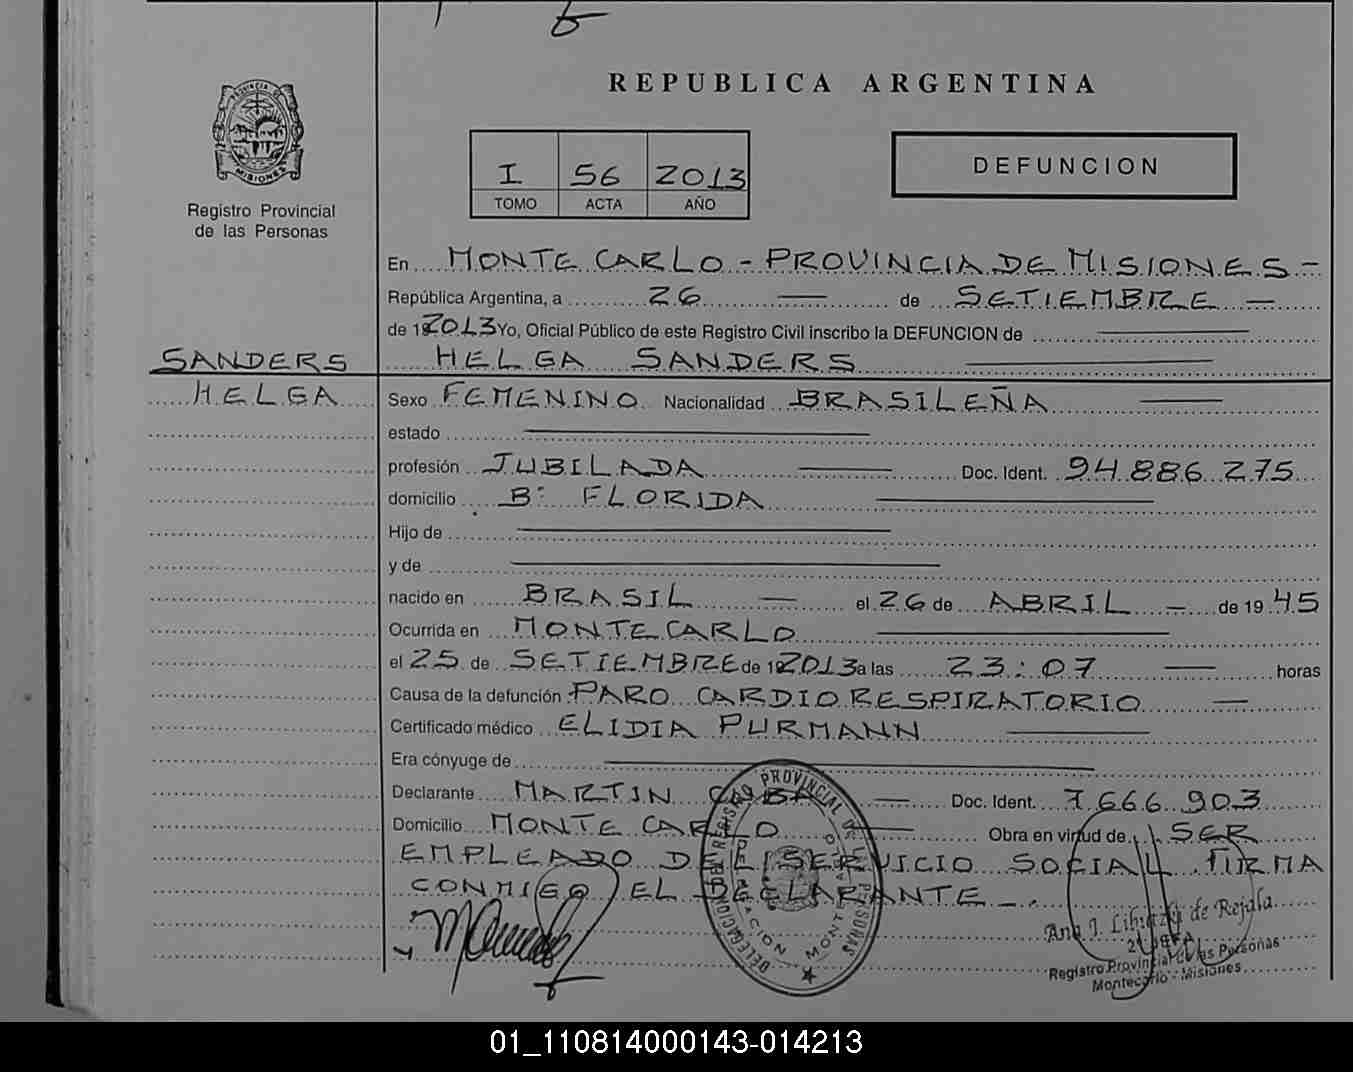 REPUBLICA ARGENTINA
PROVINCIA DE
MISIONES
Registro Provincial
de las Personas
I 56 2013
TOMO ACTA AÑO
DEFUNCION
En MONTE CARLO - PROVINCIA DE MISIONES -
República Argentina, a 26 — de SETIEMBRE —
de 2013 Yo, Oficial Público de este Registro Civil inscribo la DEFUNCION de
SANDERS
HELGA
HELGA SANDERS
Sexo FEMENINO Nacionalidad BRASILEÑA
estado
profesión JUBILADA Doc. Ident. 94.886.275
domicilio Bº FLORIDA
Hijo de
y de
nacido en BRASIL — el 26 de ABRIL — de 19 45
Ocurrida en MONTE CARLO
el 25 de SETIEMBRE de 2013 a las 23:07 — horas
Causa de la defunción PARO CARDIORESPIRATORIO —
Certificado médico ELIDIA PURMANN
Era cónyuge de
Declarante MARTIN Doc. Ident. 7.666.903
Domicilio MONTE CARLO Obra en virtud de SER
EMPLEADO DEL SERVICIO SOCIAL FIRMA
CONMIGO EL DECLARANTE -.
DELEGACION DEL REGISTRO PROVINCIAL DE LAS PERSONAS
Ana J. de Rejala
JEFA
Registro Provincial de las Personas
Montecarlo - Misiones
01_110814000143-014213